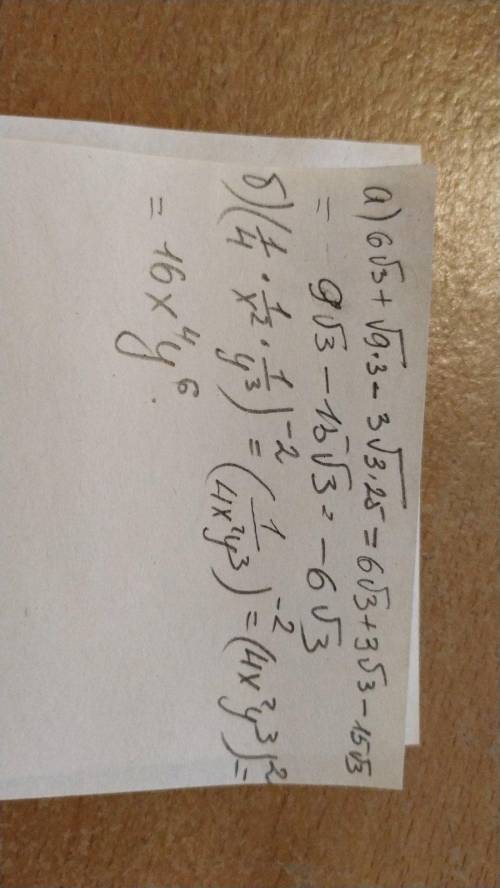 а) 6√3 + √9·3 − 3√3·25 = 6√3 + 3√3 − 15√3
= 9√3 − 15√3 = −6√3
б) (1/4 · 1/x² · 1/y³)⁻² = (1/4x²y³)⁻² = (4x²y³)² =
= 16x⁴y⁶.